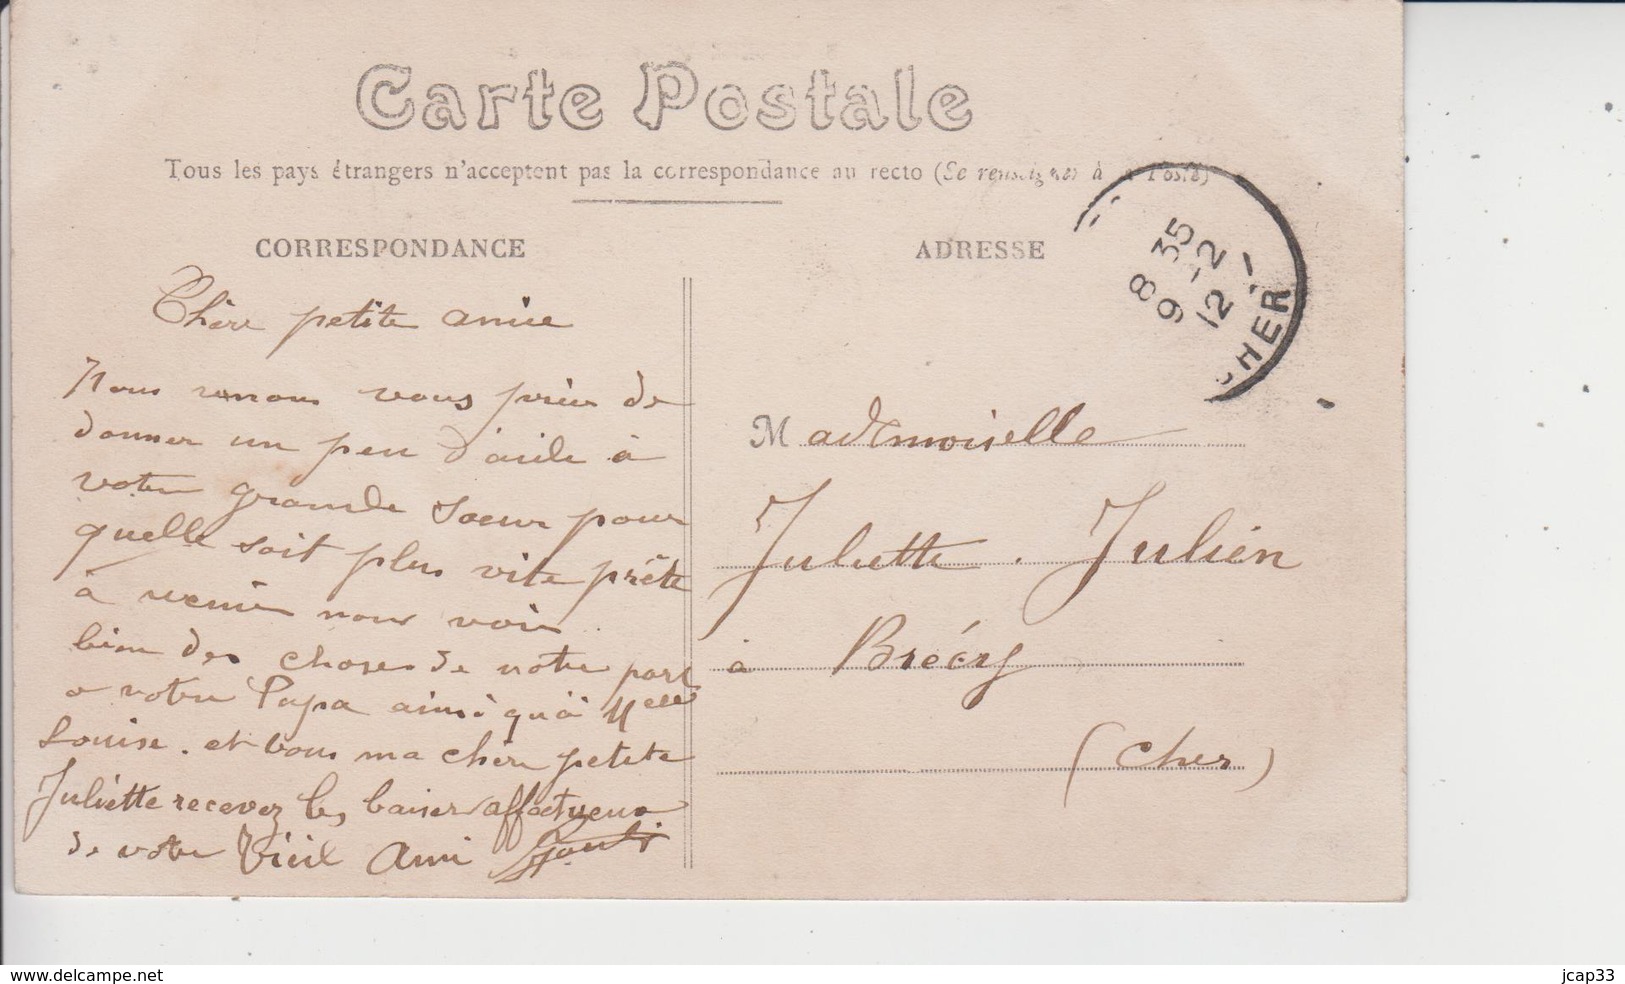 Carte Postale
Tous les pays étrangers n'acceptent pas la correspondance au recto (Se renseigner à la Poste)
CORRESPONDANCE
Chère petite amie
Nous venons vous prier de
donner un peu d'aide à
votre grande soeur pour
quelle soit plus vite prête
à venir nous voir
bien des choses de notre part
a votre Papa ainsi qu'à Melle
Louise. et vous ma chère petite
Juliette recevez les baisers affectueux
de votre vieil Ami
ADRESSE
8 35
9 -2
12
CHER
Mademoiselle
Juliette. Julien
à Brécy
(Cher)
www.delcampe.net
jcap33